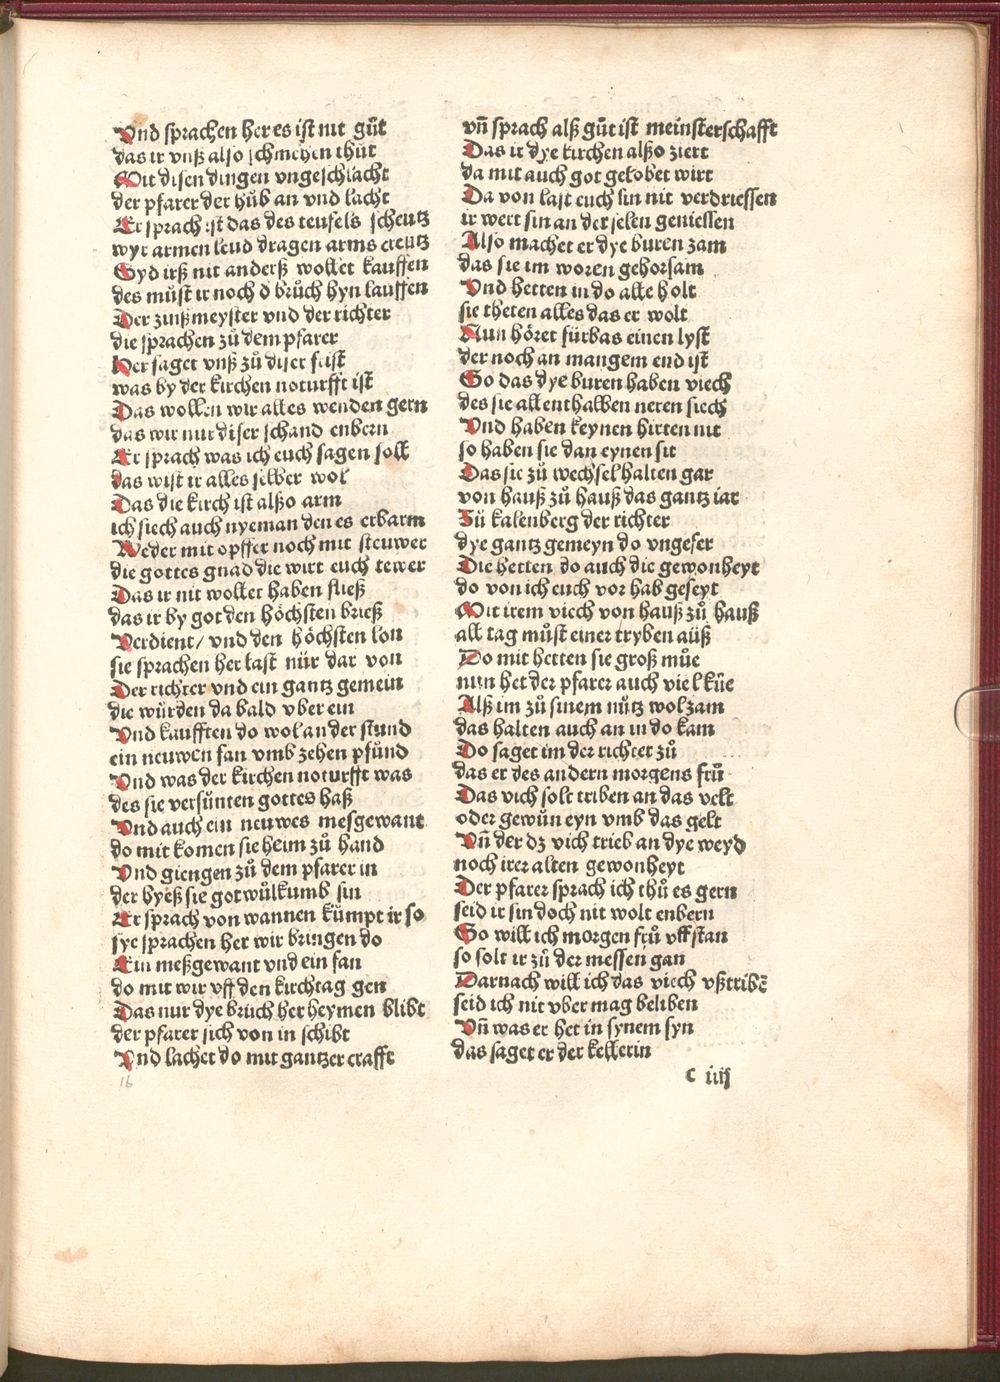 Vnd sprachen her es ist nit gůt
das ir vnß also schmehen thůt
Mit disen dingen vngeschlacht
der pfarer der hůb an vnd lacht
Er sprach ist das des teufels scheutz
wyr armen leud dragen arms creutz
Syd irß nit anderß wollet kauffen
des můst ir noch d brůch hyn lauffen
Der zinßmeyster vnd der richter
die sprachen zů dem pfarer
Her saget vnß zů diser frist
was by der kirchen noturfft ist
Das wollen wir alles wenden gern
das wir nur diser schand enbern
Er sprach was ich euch sagen soll
das wist ir alles selber wol
Das die kirch ist alßo arm
ich siech auch nyeman den es erbarm
Weder mit opffer noch mit steuwer
die gottes gnad die wirt euch tewer
Das ir nit wollet haben fließ
das ir by got den höchsten brieß
Verdient/ vnd den höchsten lon
sie sprachen her last nür dar von
Der richter vnd ein gantz gemein
die würden da bald vber ein
Vnd kaufften do wol an der stund
ein neuwen fan vmb zehen pfünd
Vnd was der kirchen noturfft was
des sie versünten gottes haß
Vnd auch ein neuwes mesgewant
do mit komen sie heim zů hand
Vnd giengen zů dem pfarer in
der hyeß sie got wůlkumb sin
Er sprach von wannen kümpt ir so
sye sprachen her wir bringen do
Ein meßgewant vnd ein fan
do mit wir vff den kirchtag gen
Das nur dye brůch her heymen blibt
der pfarer sich von in schibt
Vnd lachet do mit gantzer crafft
16
vn̄ sprach alß gůt ist meinsterschafft
Das ir dye kirchen alßo ziert
da mit auch got gelobet wirt
Da von last euch sin nit verdriessen
ir wert sin an der selen geniessen
Also machet er dye buren zam
das sie im woren gehorsam
Vnd hetten in do alle holt
sie theten alles das er wolt
Nun höret fürbas einen lyst
der noch an mangem end ist
So das dye buren haben viech
des sie allenthalben neren siech
Vnd haben keynen hirten nit
so haben sie dan eynen sit
Das sie zů wechsel halten gar
von hauß zů hauß das gantz iar
Zü kalenberg der richter
dye gantz gemeyn do vngefer
Die hetten do auch die gewonheyt
do von ich euch vor hab geseyt
Mit irem viech von hauß zů hauß
all tag můst einer tryben aüß
Do mit hetten sie groß můe
nun het der pfarer auch viel küe
Alß im zů sinem nütz wol zam
das halten auch an in do kam
Do saget im der richter zů
das er des andern morgens frů
Das vich solt triben an das velt
oder gewün eyn vmb das gelt
Vn̄ der dz vich trieb an dye weyd
noch irer alten gewonheyt
Der pfarer sprach ich thů es gern
seid ir sin doch nit wolt enbern
So will ich morgen frů vff stan
so solt ir zů der messen gan
Darnach will ich das viech vßtribē
seid ich nit vber mag beliben
Vn̄ was er het in synem syn
das saget er der kellerin
c iiij